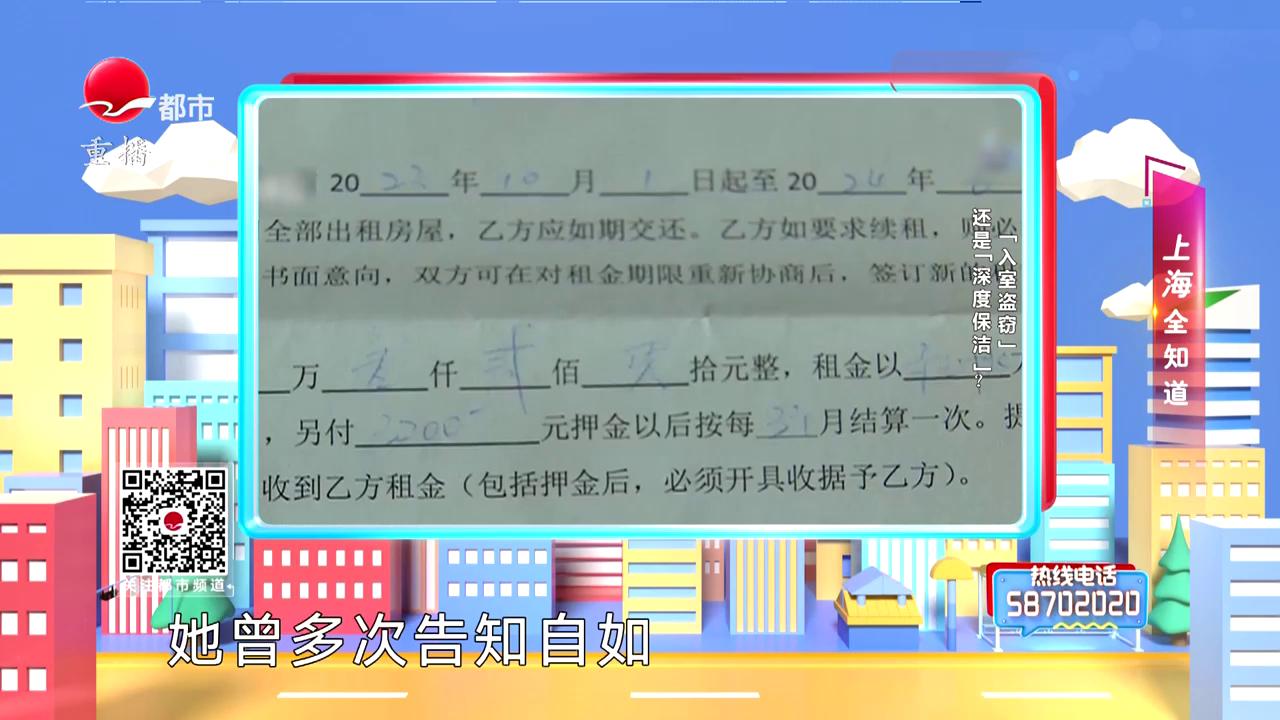 都市
重播
20 23 年 10 月 1 日起至 20 24 年
全部出租房屋，乙方应如期交还。乙方如要求续租，则必
书面意向，双方可在对租金期限重新协商后，签订新的
万 仟 贰 佰 拾元整，租金以
，另付 2200 元押金以后按每 3个 月结算一次。提
收到乙方租金（包括押金后，必须开具收据予乙方）。
「入室盗窃」
还是「深度保洁」？
上海全知道
关注都市频道
热线电话
58702020
她曾多次告知自如